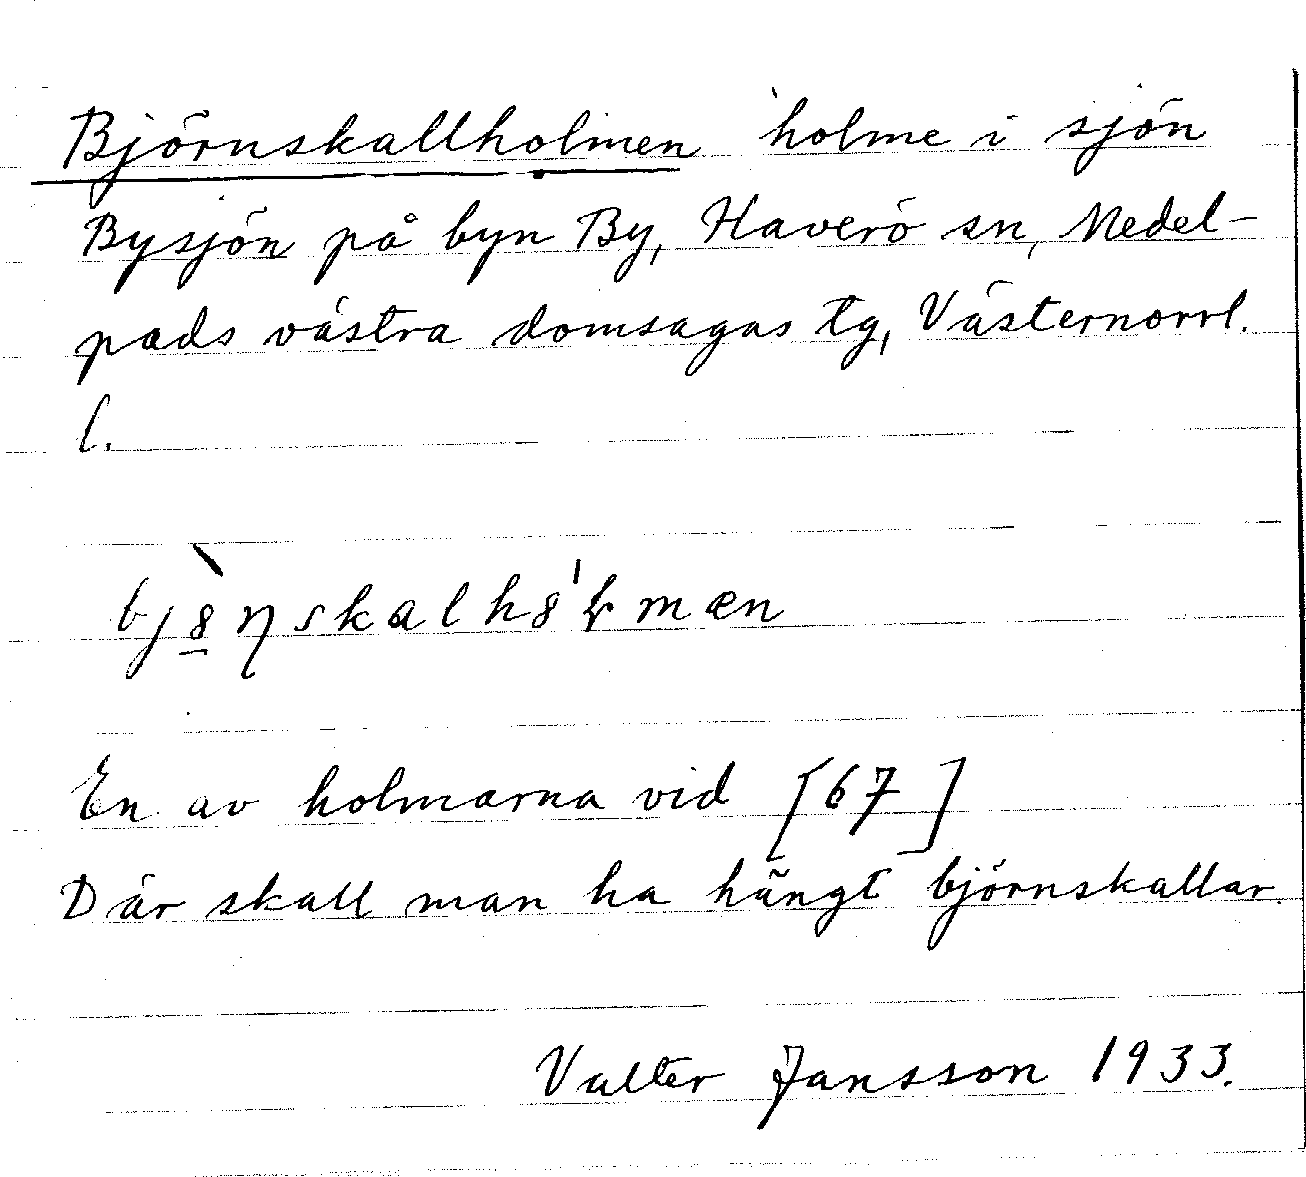 Björnskallholmen holme i sjön
Bysjön på byn By, Haverö sn, Medel-
pads västra domsagas tg, Västernorrl.
l.
En av holmarna vid [67]
Där skall man ha hängt björnskallar.
Valter Jansson 1933.